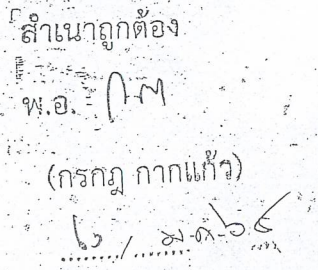 สำเนาถูกต้อง
พ.อ.
(กรกฎ กากแก้ว)
ม.ค. ๖๔